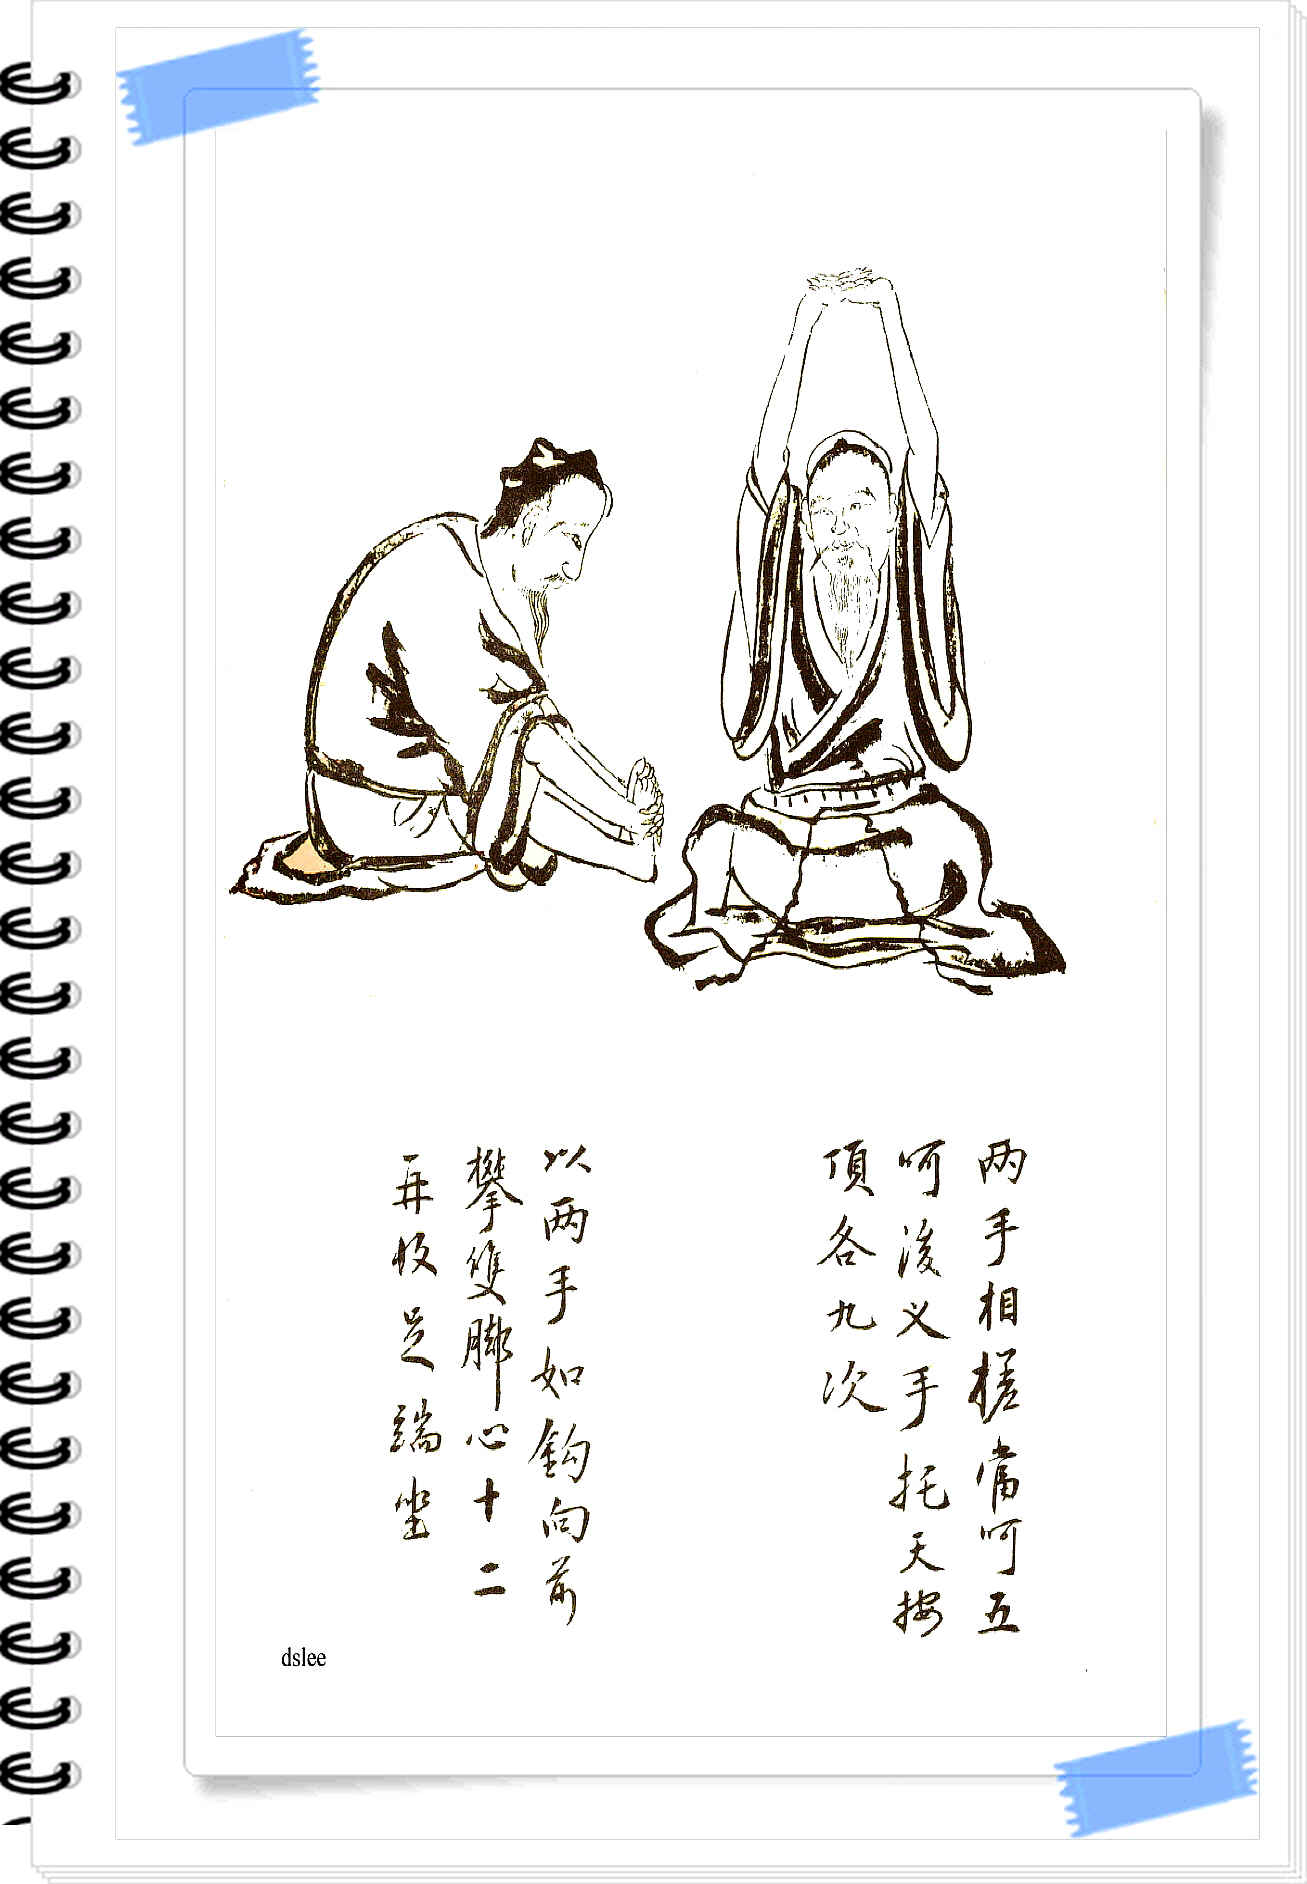 两手相搓當呵五
呵後叉手托天按
頂各九次
以两手如鈎向前
攀雙脚心十二
再收足端坐
dslee